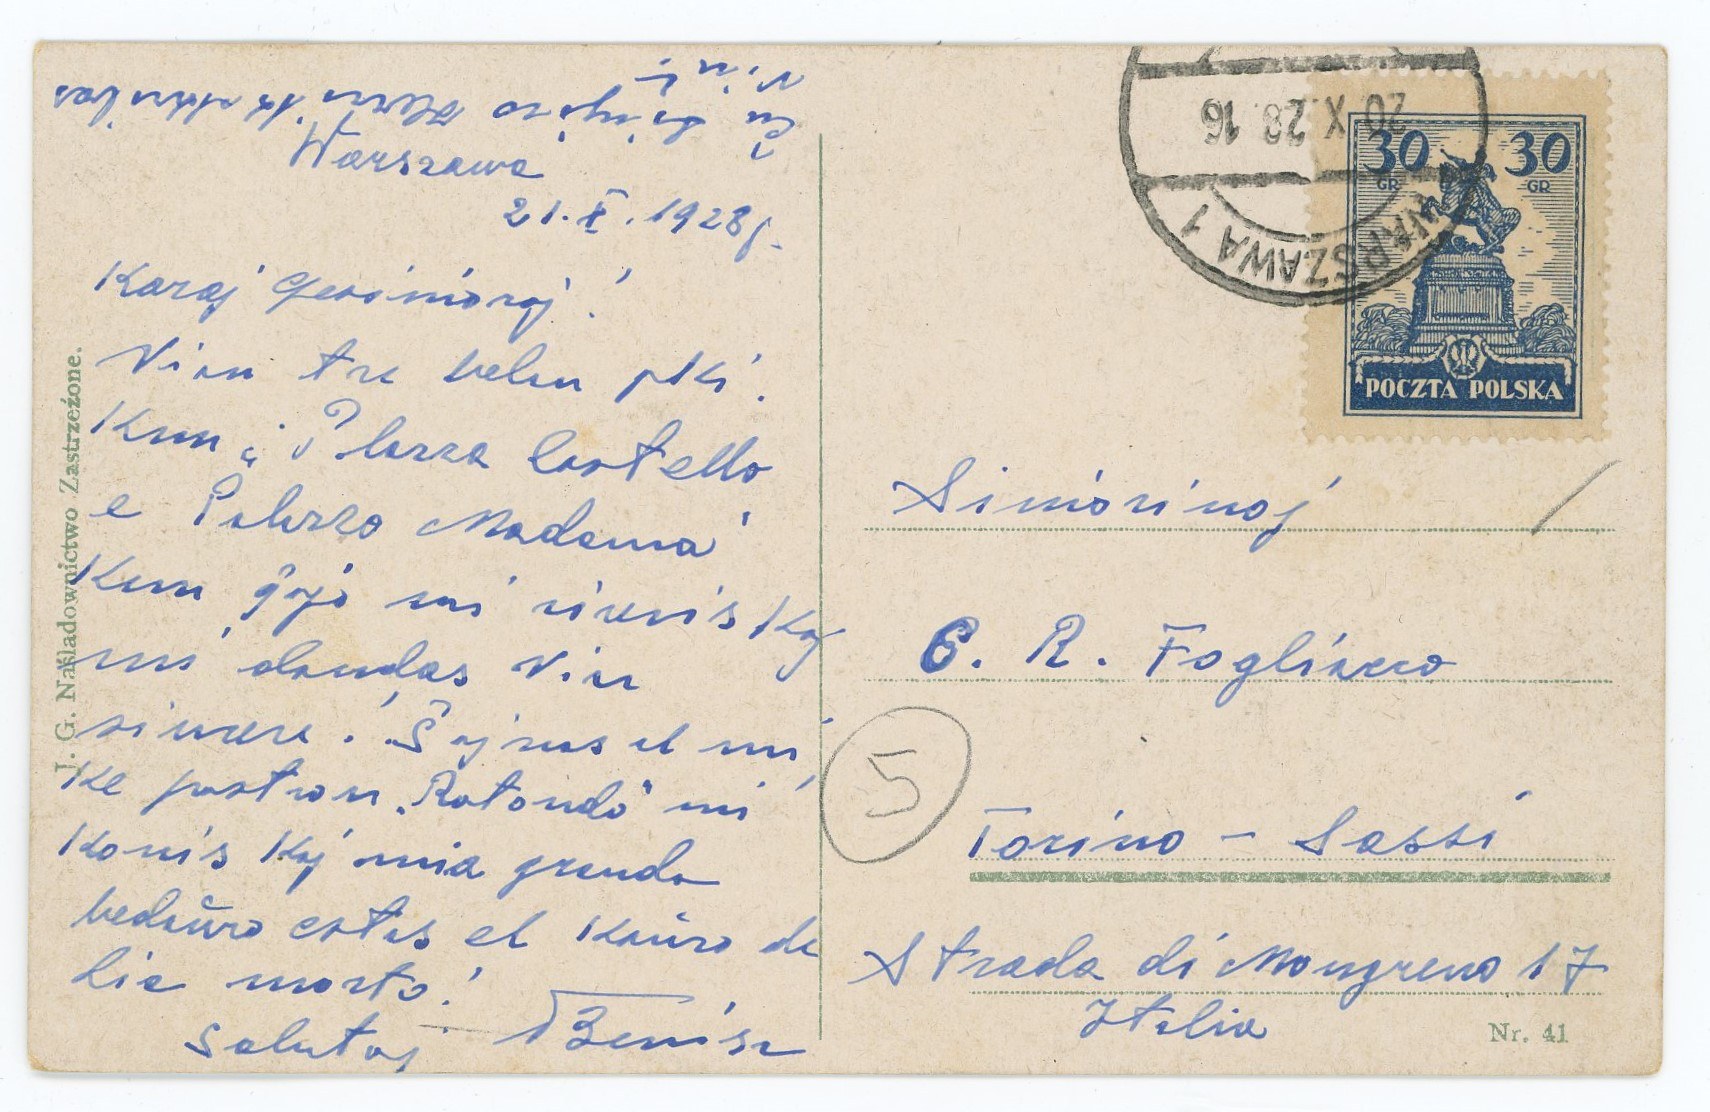 Warszawa
21.X.1928 j.
Karaj Gesinioroj!
Vian tre belan pki.
Kun „Plazza Castello
e Palazzo Madama"
Kun ĝojo mi ricevis kaj
mi dankas Vin
sincere! Ŝajnas al mi,
ke pastron „Rotondo" mi
konis kaj mia granda
bedaŭro estas el kaŭzo de
lia morto!
Salutas
Benisz
Ĉu Sinjoro
Vin?
J. G. Naśladownictwo Zastrzeżone.
20.X.28.16
WARSZAWA 1
30 30
GR GR
POCZTA POLSKA
Siniorinoj
C. R. Fogliazzo
5
Torino - Sassi
Strada di Mongreno 17
Italia
Nr. 41